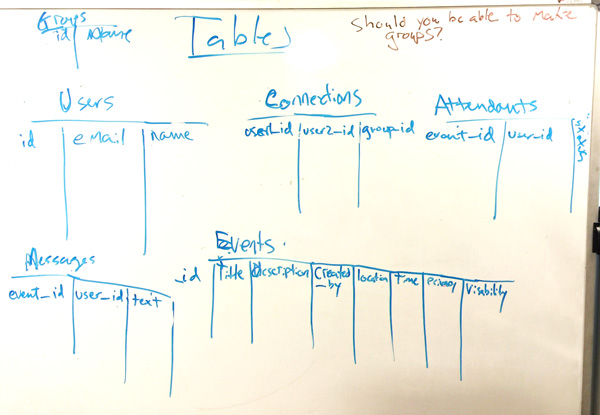 Groups
id name
Tables
Should you be able to make
groups?
Users
id email name
Connections
user1_id user2_id group_id
Attendants
event_id user_id status
Messages
event_id user_id text
Events
_id Title Description Created_by location Time privacy Visability